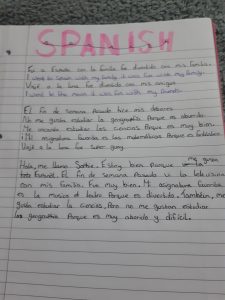 SPANISH
Fui a España con la familia fue divertido con mis familia.
I went to Spain with my family it was fun with my family.
Viajé a la luna fue divertido con mis amigos
I went to the moon it was fun with my friends.
El fin de semana pasado hice mis deberes
No me gusta estudiar la geografía porque es aburrido.
Me encanta estudiar las ciencias porque es muy bien.
Mi asignatura favorita es las matemáticas porque es fantástico
Viajé a la luna fue super guay.
Hola, me llamo Sophie. Estoy bien porque me gusta
español. El fin de semana pasado vi la televisión
con mis familia. Fue muy bien. Mi asignatura favorita
es la musica el teatro porque es divertido. También, me
gusta estudiar la ciencias. Pero no me gustan estudiar
las geographia porque es muy aburido y dificil.